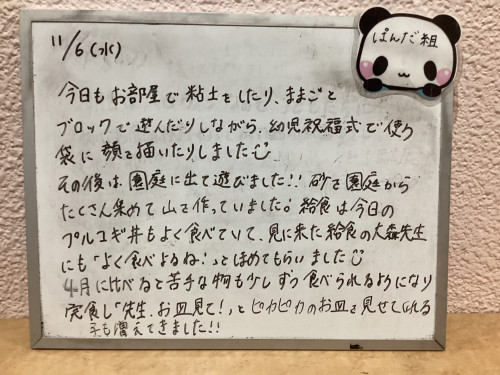 11/6(水)
ぱんだ組
今日もお部屋で粘土をしたり、ままごと
ブロックで遊んだりしながら、幼児祝福式で使う
袋に顔を描いたりしました
その後は、園庭に出て遊びました!! 砂を園庭から
たくさん集めて山を作っていました! 給食は今日の
プルコギ丼もよく食べていて、見に来た給食の大森先生
にも「よく食べよるね!」とほめてもらいました
4月に比べると苦手な物も少しずつ食べられるようになり
完食し「先生、お皿見て!」とピカピカのお皿を見せてくれる
子も増えてきました!!